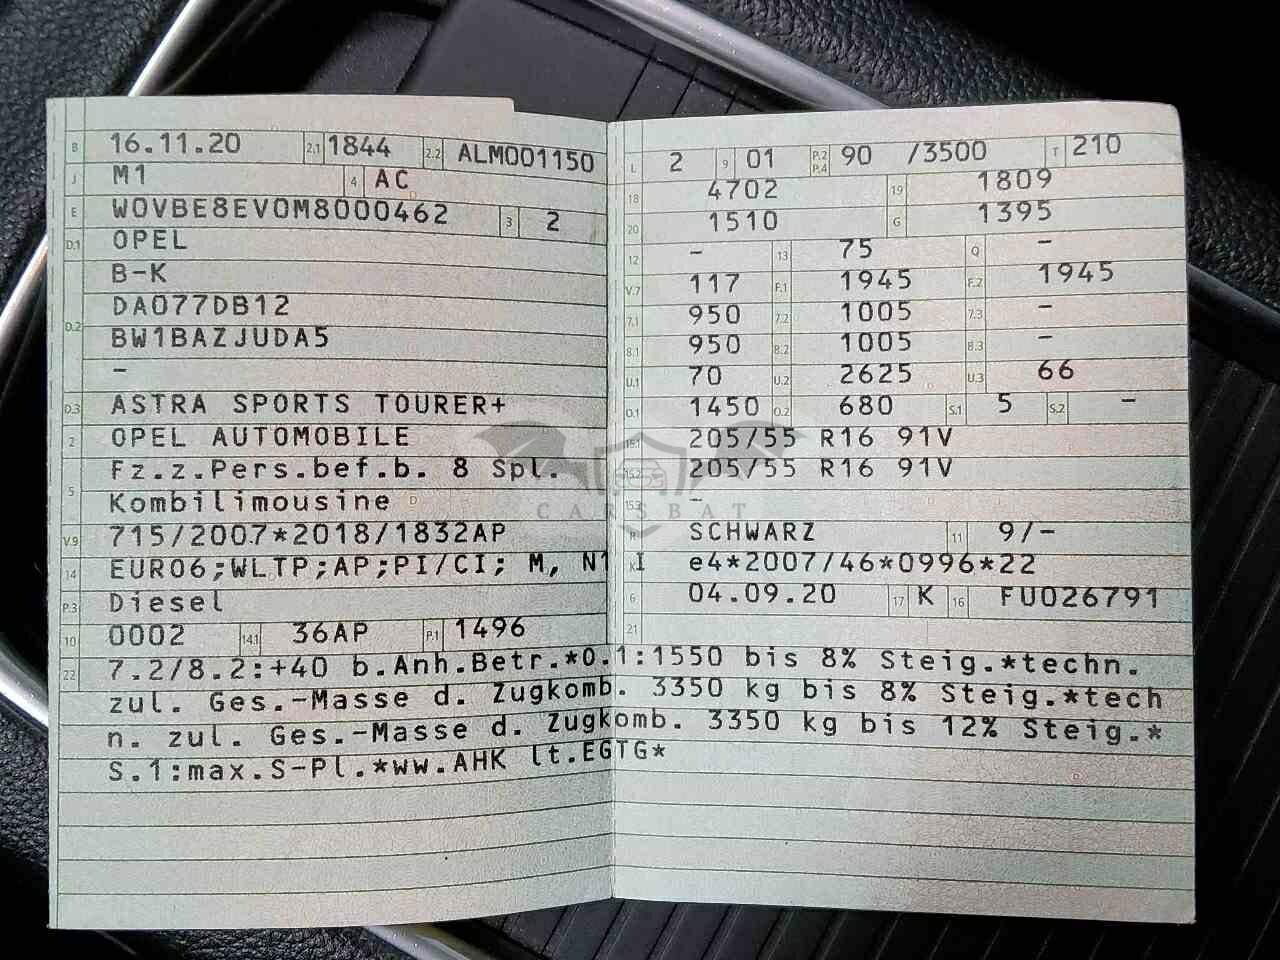 B 16.11.20 2.1 1844 2.2 ALM001150
J M1 4 AC
E W0VBE8EV0M8000462 3 2
D.1 OPEL
B-K
D.2 DA077DB12
BW1BAZJUDA5
-
D.3 ASTRA SPORTS TOURER+
2 OPEL AUTOMOBILE
5 Fz.z.Pers.bef.b. 8 Spl.
Kombilimousine
V.9 715/2007*2018/1832AP
14 EURO6;WLTP;AP;PI/CI; M, N1 I
P.3 Diesel
10 0002 14.1 36AP P.1 1496
L 2 9 01 P.2 P.4 90 /3500 T 210
18 4702 19 1809
20 1510 G 1395
12 - 13 75 Q -
V.7 117 F.1 1945 F.2 1945
7.1 950 7.2 1005 7.3 -
8.1 950 8.2 1005 8.3 -
U.1 70 U.2 2625 U.3 66
O.1 1450 O.2 680 S.1 5 S.2 -
15.1 205/55 R16 91V
15.2 205/55 R16 91V
15.3 -
R SCHWARZ 11 9/-
K e4*2007/46*0996*22
6 04.09.20 17 K 16 FU026791
21
22 7.2/8.2:+40 b.Anh.Betr.*O.1:1550 bis 8% Steig.*techn.
zul. Ges.-Masse d. Zugkomb. 3350 kg bis 8% Steig.*tech
n. zul. Ges.-Masse d. Zugkomb. 3350 kg bis 12% Steig.*
S.1:max.S-Pl.*ww.AHK lt.EGTG*
CARSBAT